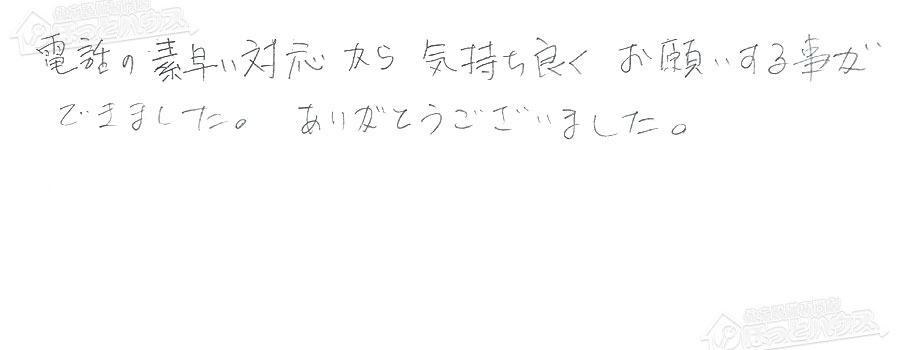 電話の素早い対応から気持ち良くお願いする事が
できました。ありがとうございました。
ほっとハウス